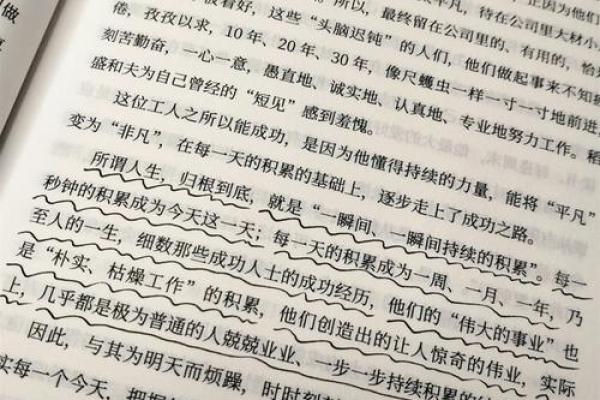 做
正因为他们
所以，最终留在公司里的、有用的，恰
这些“头脑迟钝”的人们，他们做起事来不知疲
倦，孜孜以求，10年、20年、30年，像尺蠖虫一样一寸一寸地前进，
刻苦勤奋，一心一意，愚直地、诚实地、认真地、专业地努力工作。稻
盛和夫为自己曾经的“短见”感到羞愧。
这位工人之所以能成功，是因为他懂得持续的力量，能将“平凡”
变为“非凡”，在每一天的积累的基础上，逐步走上了成功之路。
所谓人生，归根到底，就是“一瞬间、一瞬间持续的积累”。每一
秒钟的积累成为今天这一天；每一天的积累成为一周、一月、一年，乃
至人的一生，细数那些成功人士的成功经历，他们的“伟大的事业”也
是“朴实、枯燥工作”的积累，他们创造出的让人惊奇的伟业，实际
上，几乎都是极为普通的人兢兢业业、一步一步持续积累的
因此，与其为明天而烦躁，时时刻
实每一个今天，把握